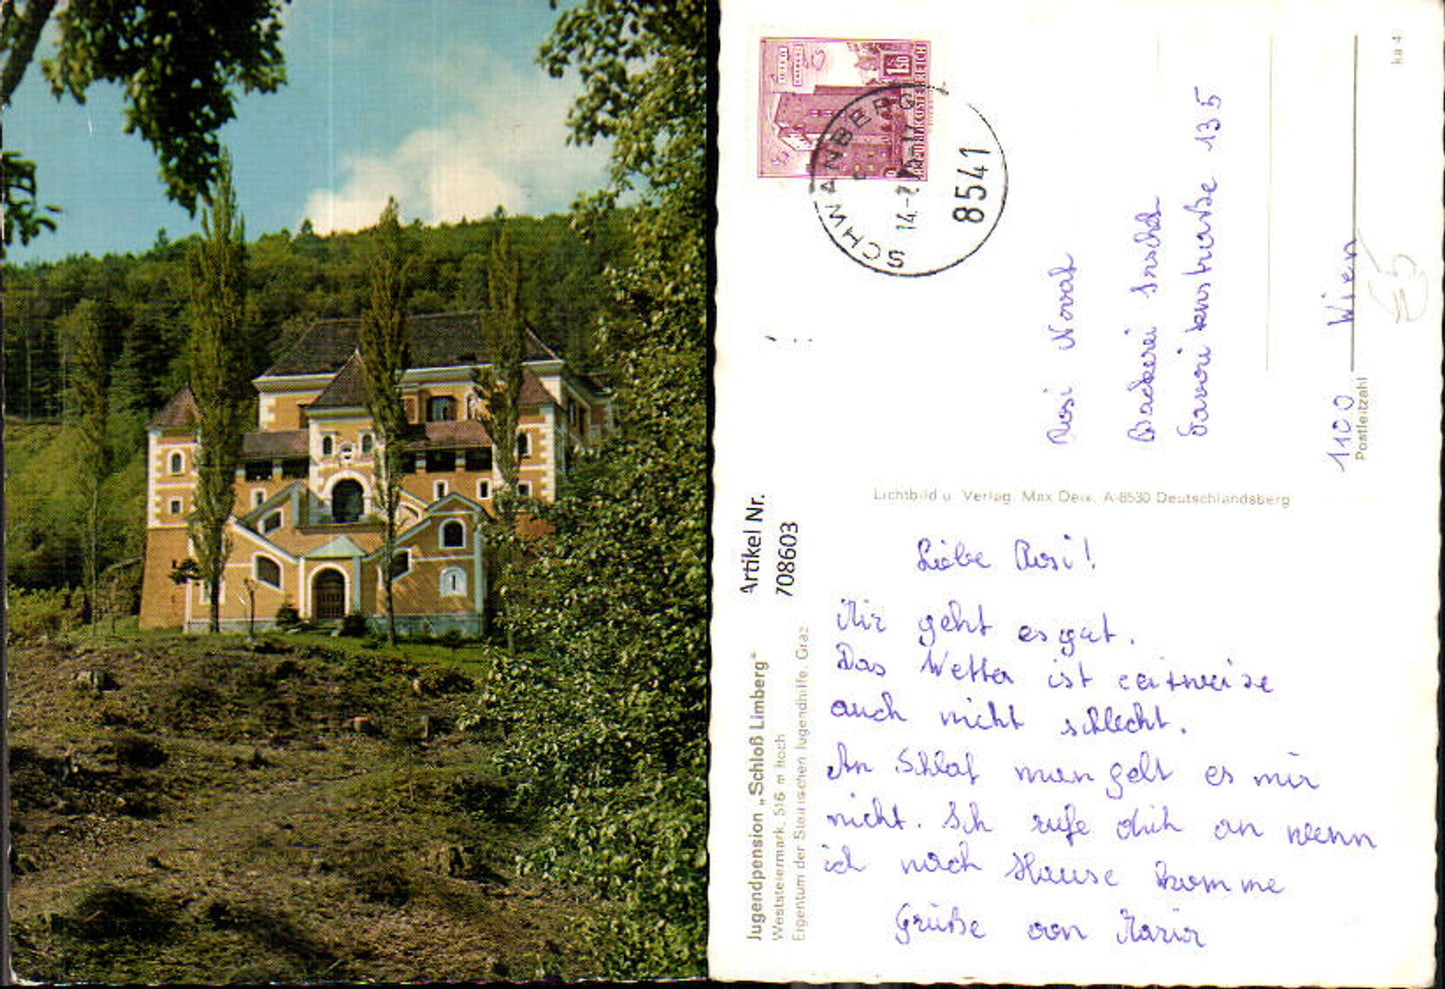 1.50
REPUBLIK ÖSTERREICH
SCHWANBERG
14.-7.
8541
ka 4
Rosi Novak
Bäckerei
Favoritenstraße 135
1100 Wien
Postleitzahl
Lichtbild u. Verlag Max Deix, A-8530 Deutschlandsberg
Artikel Nr.
708603
Jugendpension „Schloß Limberg"
Weststeiermark, 516 m hoch
Eigentum der Steirischen Jugendhilfe, Graz
Liebe Rosi!
Mir geht es gut.
Das Wetter ist zeitweise
auch nicht schlecht.
An Schlaf mangelt es mir
nicht. Ich rufe dich an wenn
ich nach Hause komme
Grüße von Maria